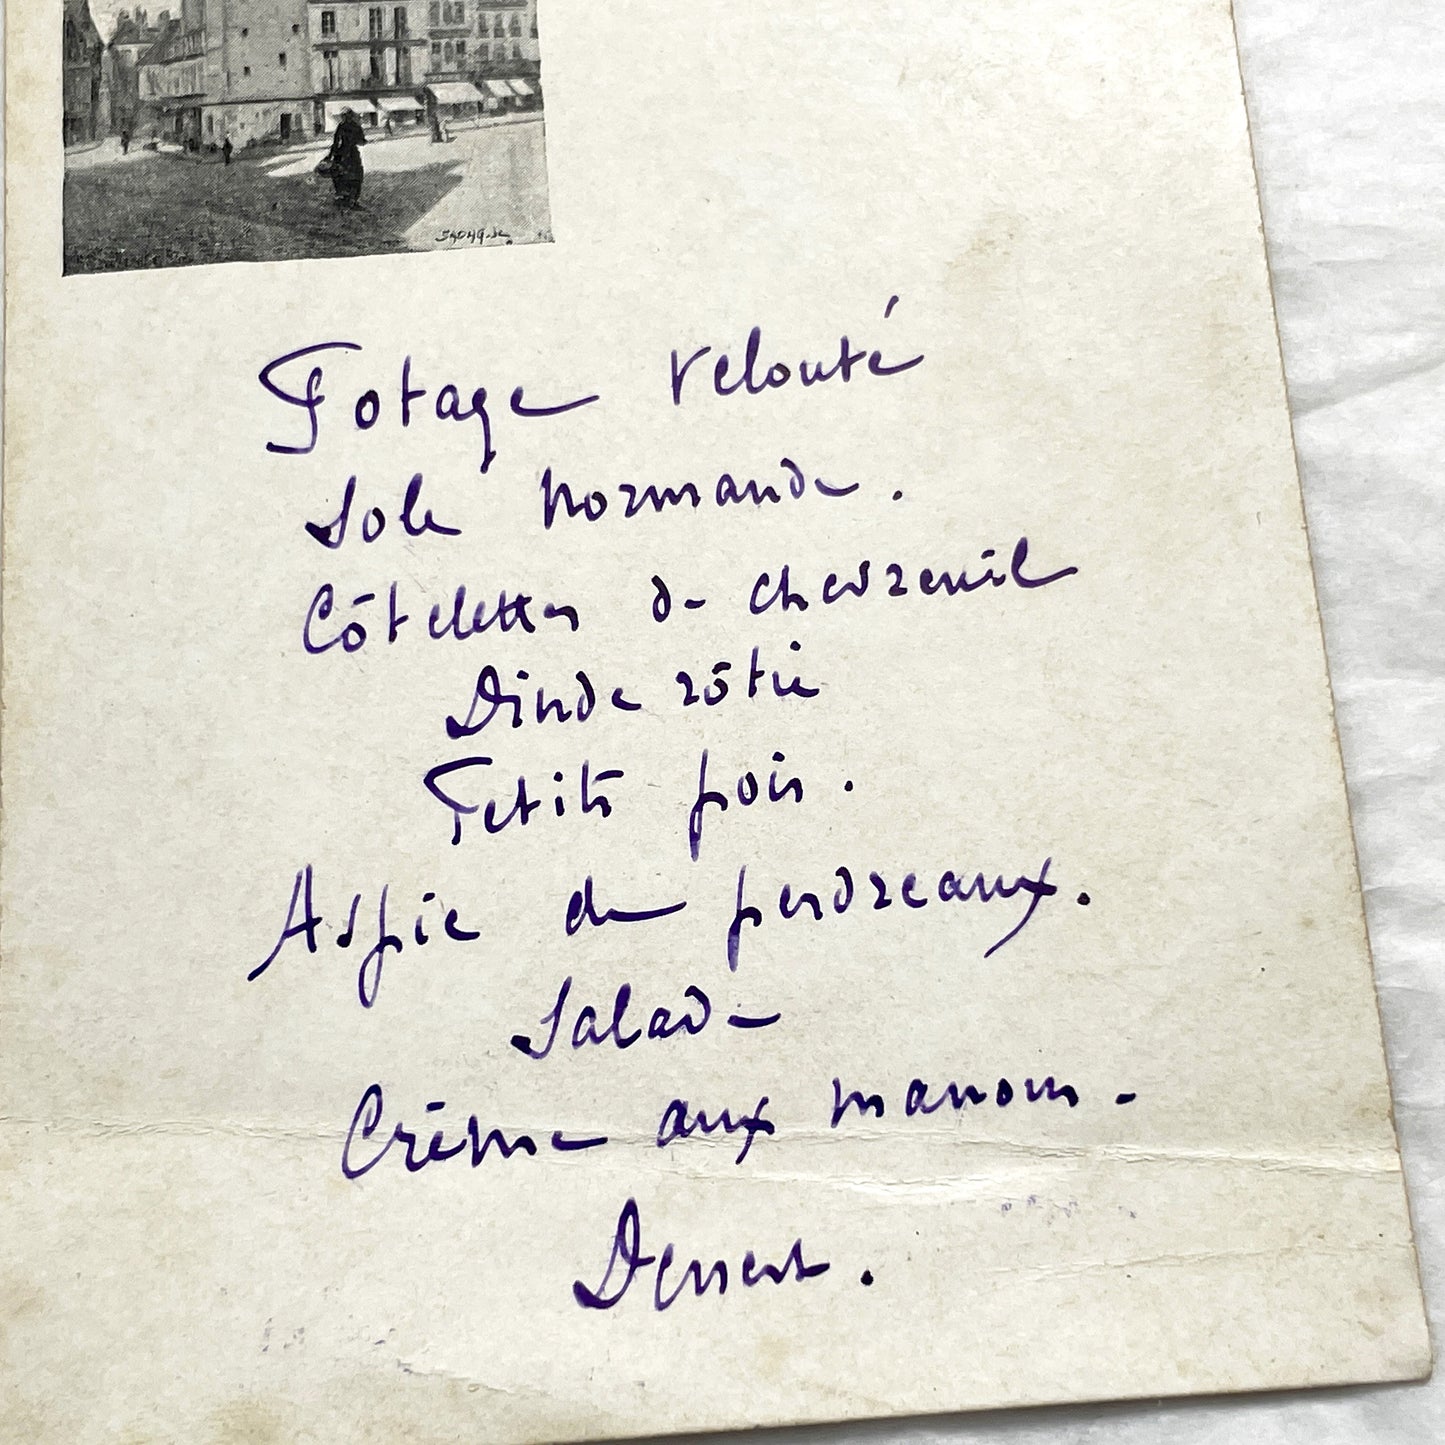 Potage velouté
Sole normande.
Côtelettes de chevreuil
Dinde rôtie
Petits pois.
Aspic de perdreaux.
Salade
Crème aux marrons.
Dessert.